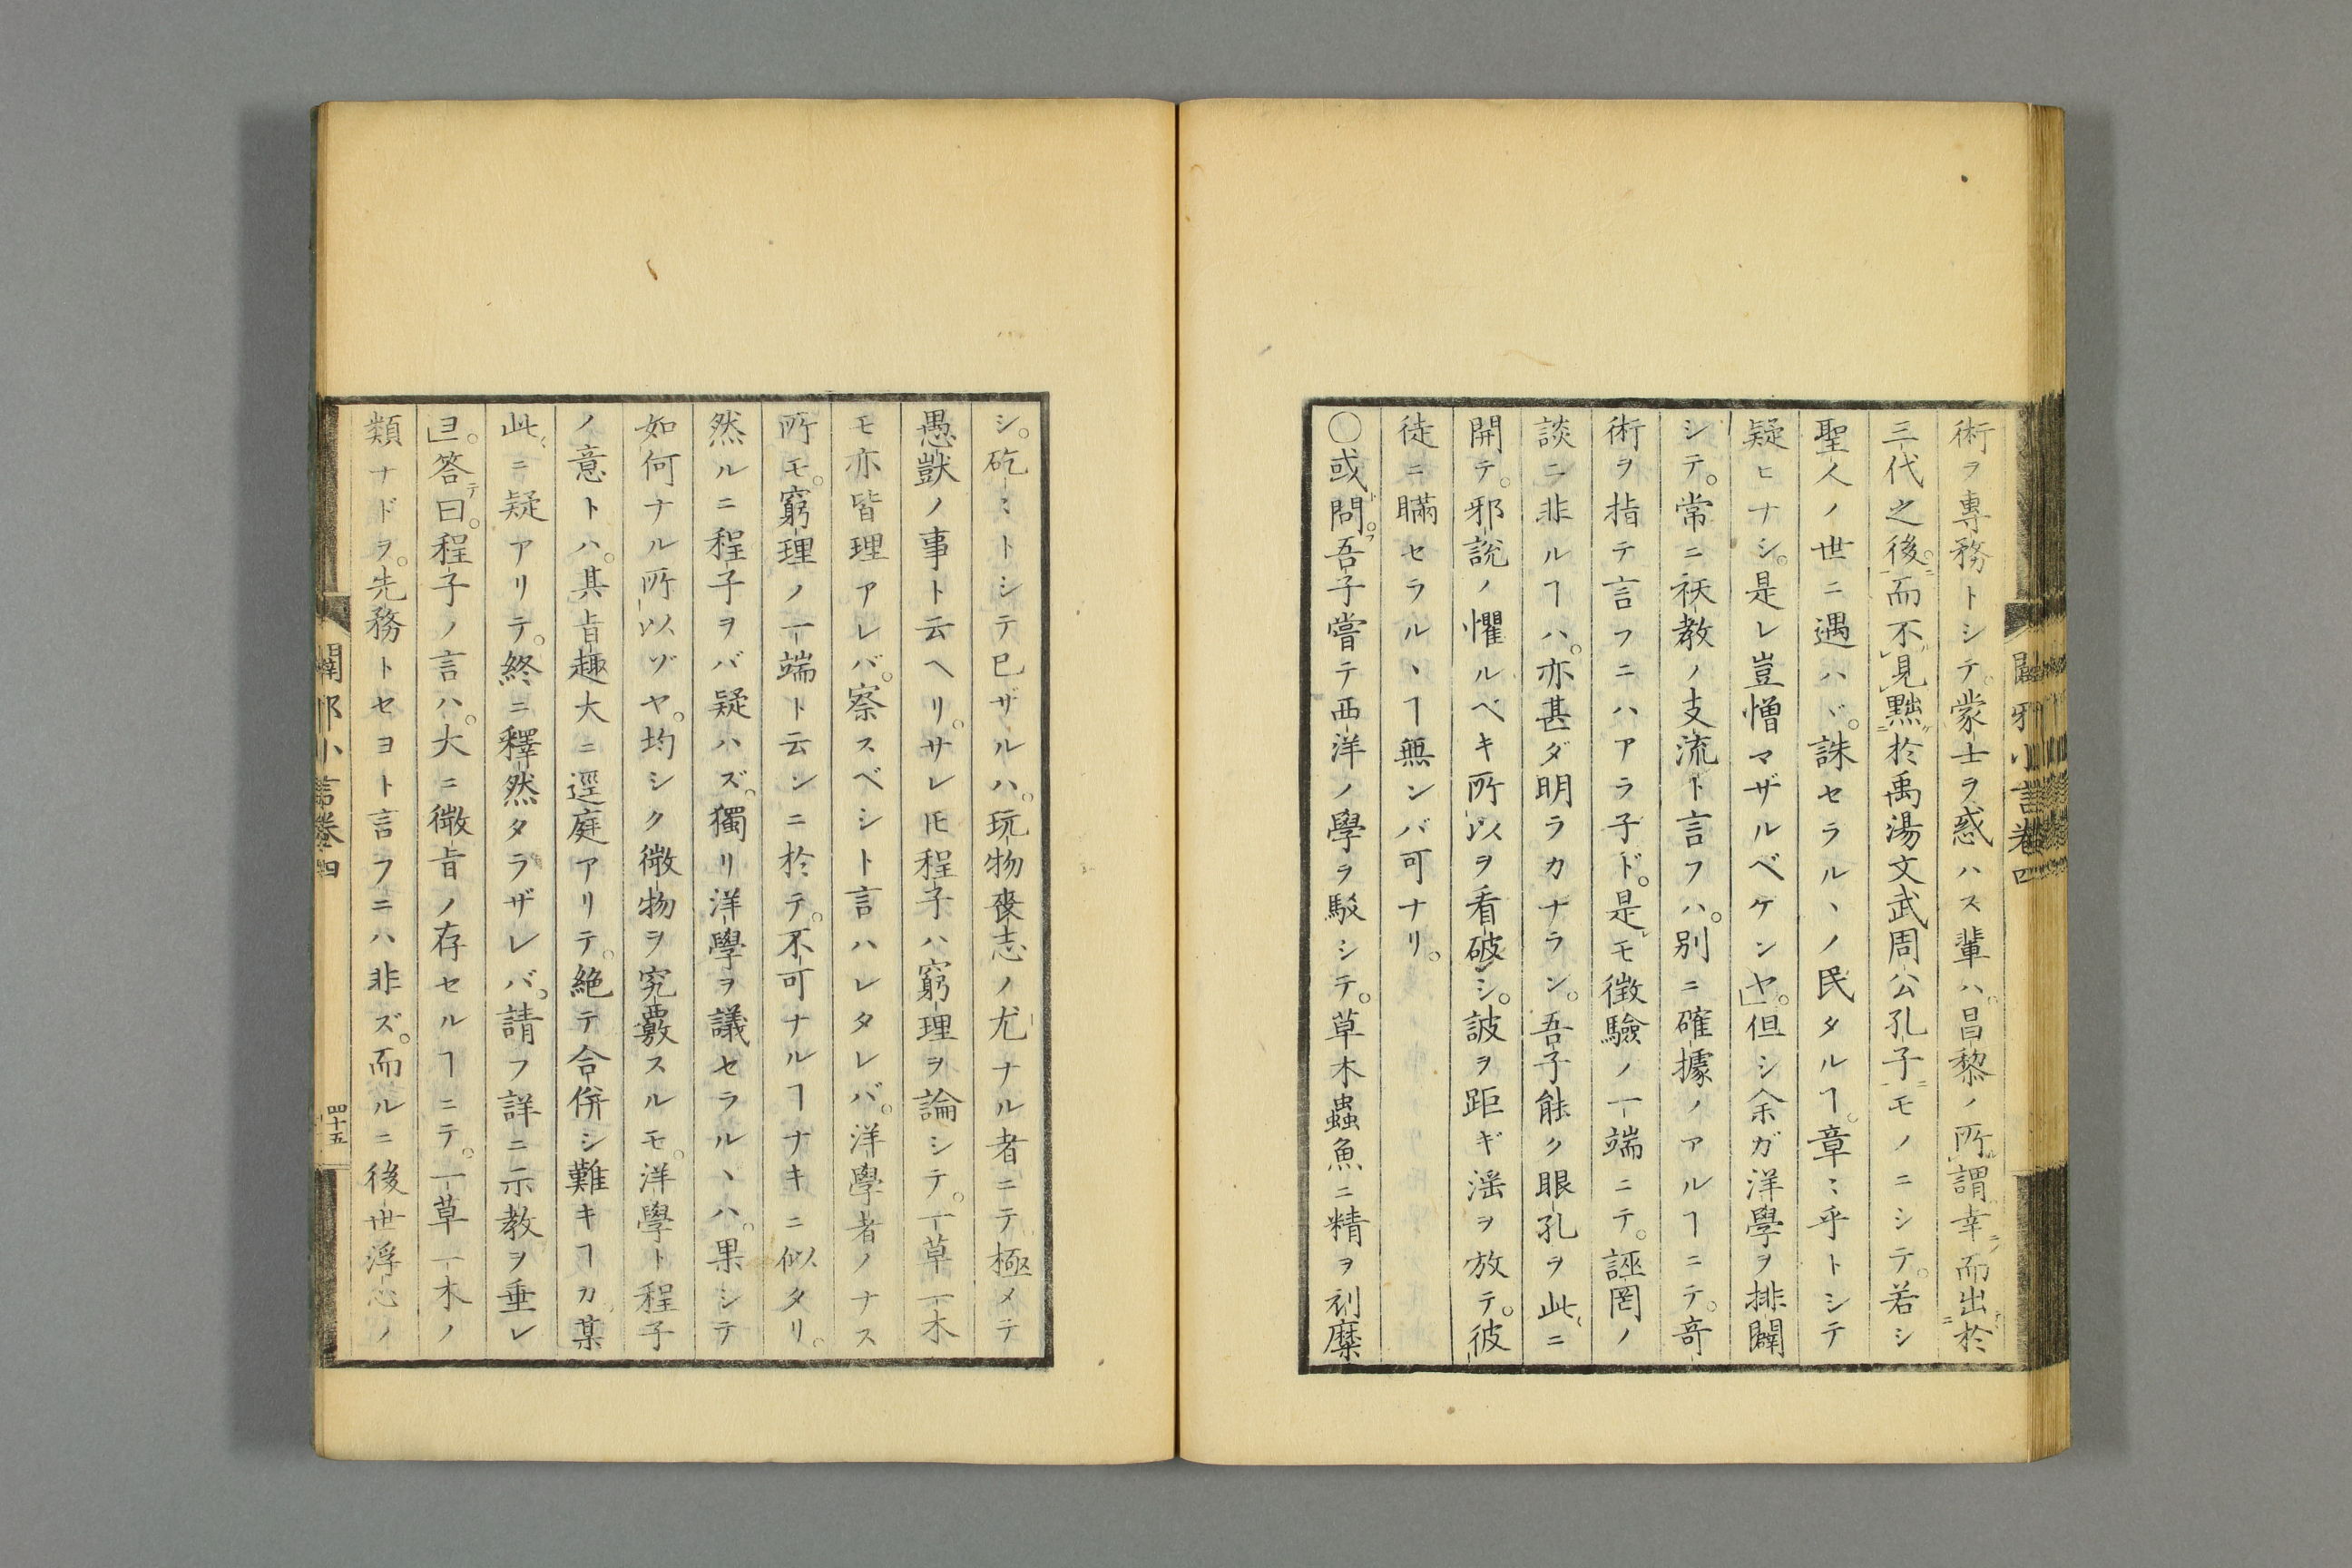 術ヲ專務トシテ。蒙士ヲ惑ハス輩ハ。昌黎ノ所謂幸而出於
三代之後。而不見黜於禹湯文武周公孔子モノニシテ。若シ
聖人ノ世ニ遇ハヾ。誅セラルヽノ民タルヿ。章〻乎トシテ
疑ヒナシ。是レ豈憎マザルベケンヤ。」但シ余ガ洋學ヲ排闢
シテ。常ニ祆教ノ支流ト言フハ。別ニ確據ノアルヿニテ。奇
術ヲ指テ言フニハアラ子ド。是モ徴驗ノ一端ニテ。誣罔ノ
談ニ非ルヿハ。亦甚ダ明ラカナラン。吾子能ク眼孔ヲ此ニ
開テ。邪說ノ懼ルベキ所以ヲ看破シ。詖ヲ距ギ滛ヲ放テ。彼
徒ニ瞞セラルヽヿ無ンバ可ナリ。
○或問。吾子嘗テ西洋ノ學ヲ駁シテ。草木蟲魚ニ精ヲ刓糜
シ。矻〻トシテ已ザルハ。玩物喪志ノ尤ナル者ニテ極メテ
愚獃ノ事ト云ヘリ。サレ𪜈程子ハ窮理ヲ論シテ。一草一木
モ亦皆理アレバ。察スベシト言ハレタレバ。洋學者ノナス
所モ。窮理ノ一端ト云ンニ於テ。不可ナルヿナキニ似タリ。
然ルニ程子ヲバ疑ハズ。獨リ洋學ヲ議セラルヽハ。果シテ
如何ナル所以ゾヤ。均シク微物ヲ究覈スルモ。洋學ト程子
ノ意トハ。其旨趣大ニ逕庭アリテ。絶テ合併シ難キヿカ。某
此ニ疑アリテ。終ニ釋然タラザレバ。請フ詳ニ示教ヲ垂レ
ヨ。」答曰。程子ノ言ハ。大ニ微旨ノ存セルヿニテ。一草一木ノ
類ナドヲ。先務トセヨト言フニハ非ズ。而ルニ後世浮ノ
闢邪小言卷四
四十五
闢邪小言卷四